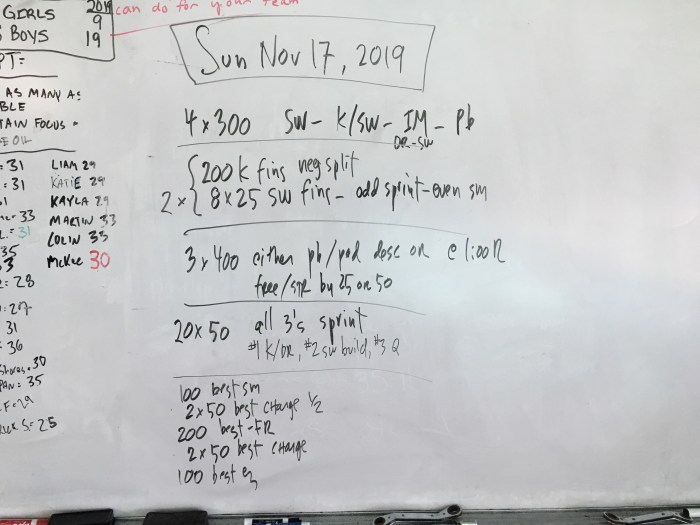 GIRLS 2019
9
BOYS 19
PT=
can do for your team
AS MANY AS
BLE
TAIN FOCUS
= 31
= 31
33
= 31
35
3
= 28
= 27
31
= 36
30
= 35
= 29
S = 25
LIAM 29
KATIE 29
KAYLA 29
MARTIN 33
COLIN 33
McKee 30
Sun Nov 17, 2019
4 x 300 SW - K/SW - IM - Pb
DR-SW
2 x { 200 k fins neg split
8 x 25 SW fins - odd sprint - even sm
3 x 400 either pb/pad desc on @ 1:00 R
free/STR by 25 or 50
20 x 50 all 3's sprint
#1 K/DR, #2 SW build, #3 Q
100 best sm
2 x 50 best change 1/2
200 best - FR
2 x 50 best change
100 best ez